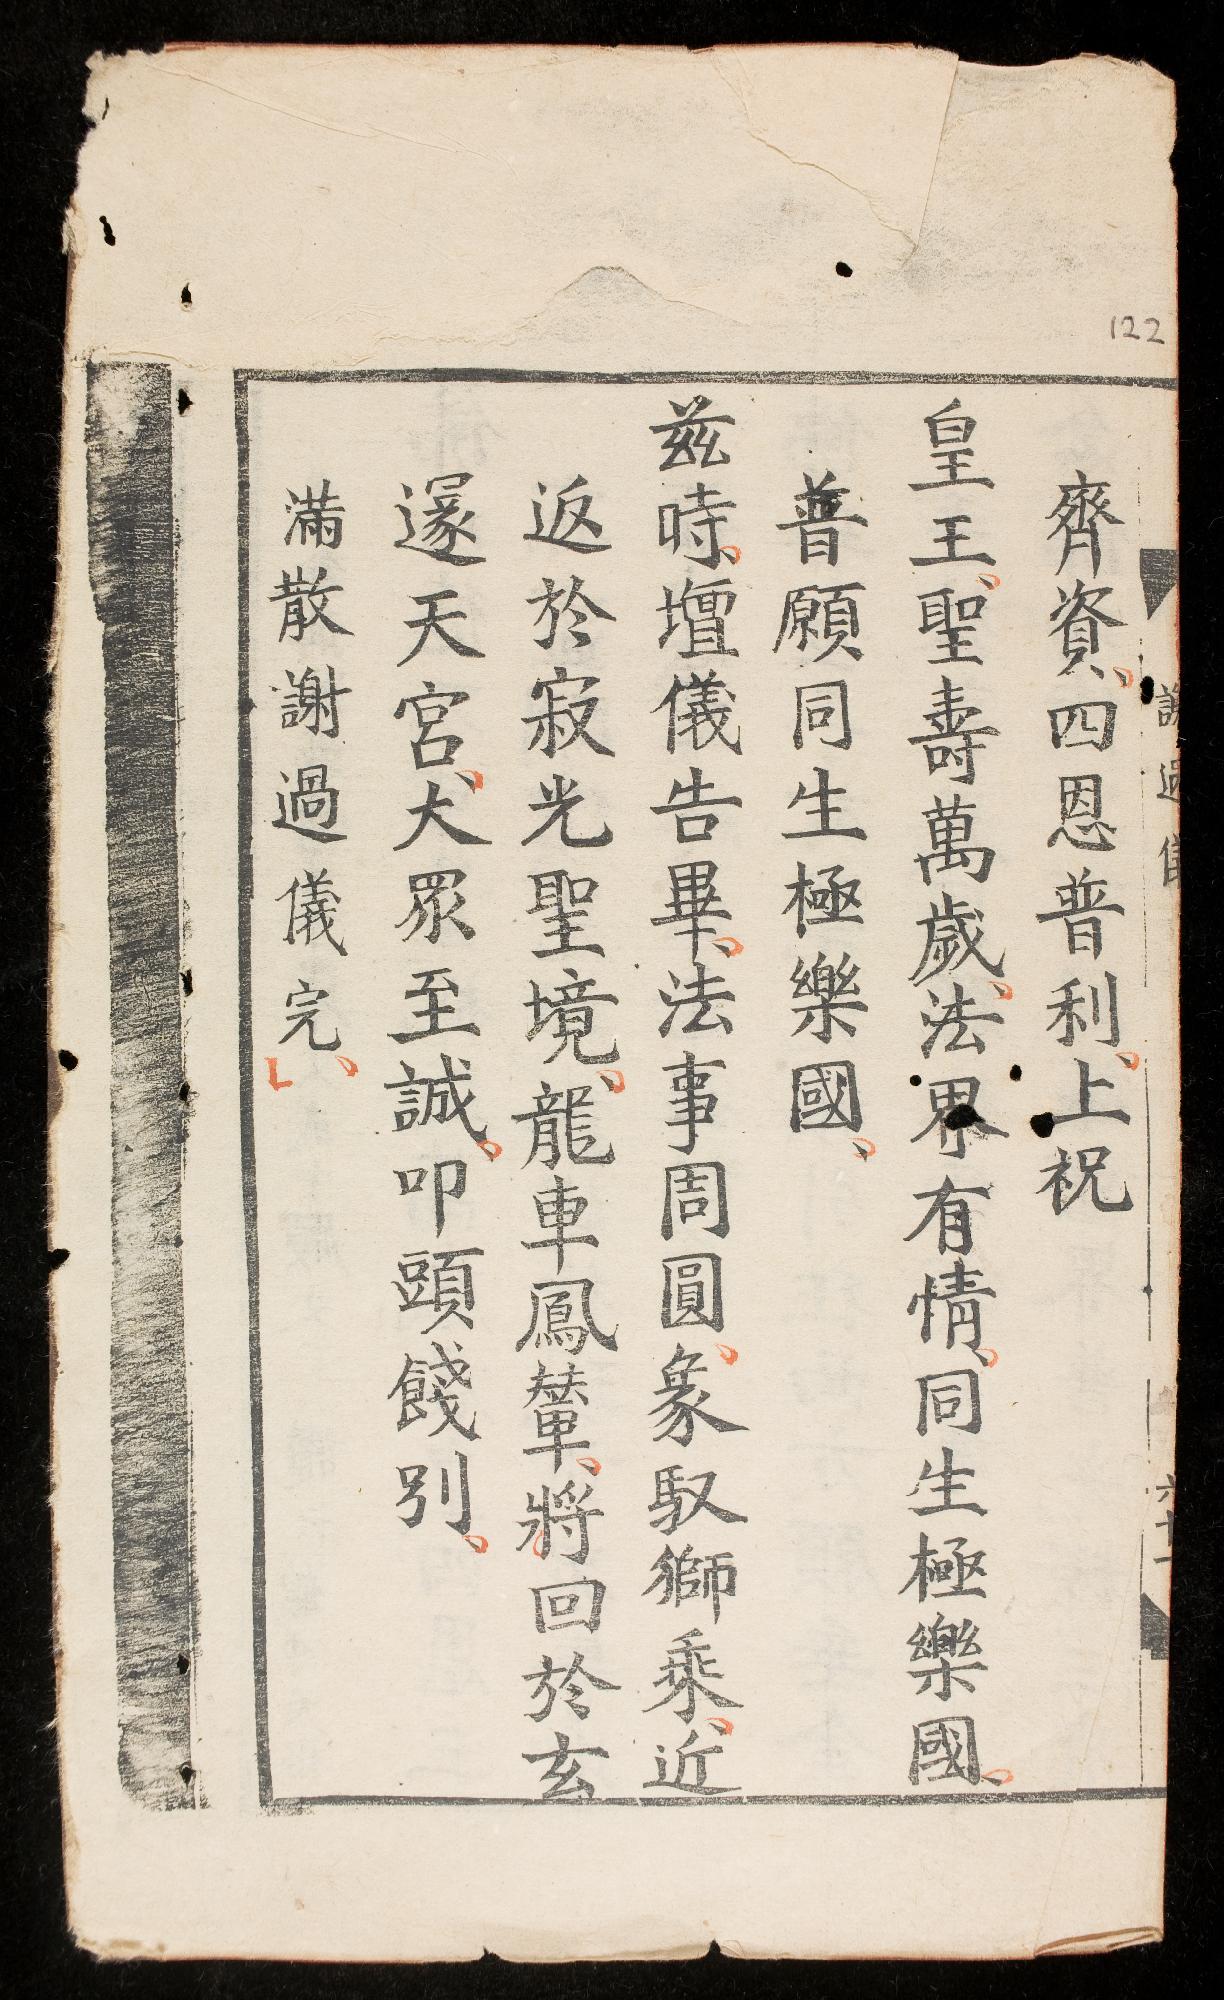 122
齊資、四恩普利、上祝
皇王、聖壽萬歲、法界有情、同生極樂國、
普願同生極樂國、
兹時、壇儀告畢、法事周圓、象馭獅乘、近
返於寂光聖境、龍車鳳輦、將回於玄
邃天宮、大眾至誠、叩頭餞別、
滿散謝過儀完、
謝過儀